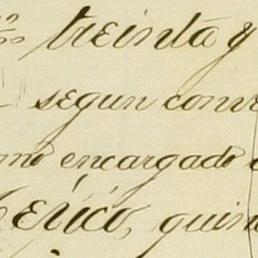 treinta y
segun conve
mo encargado
quin